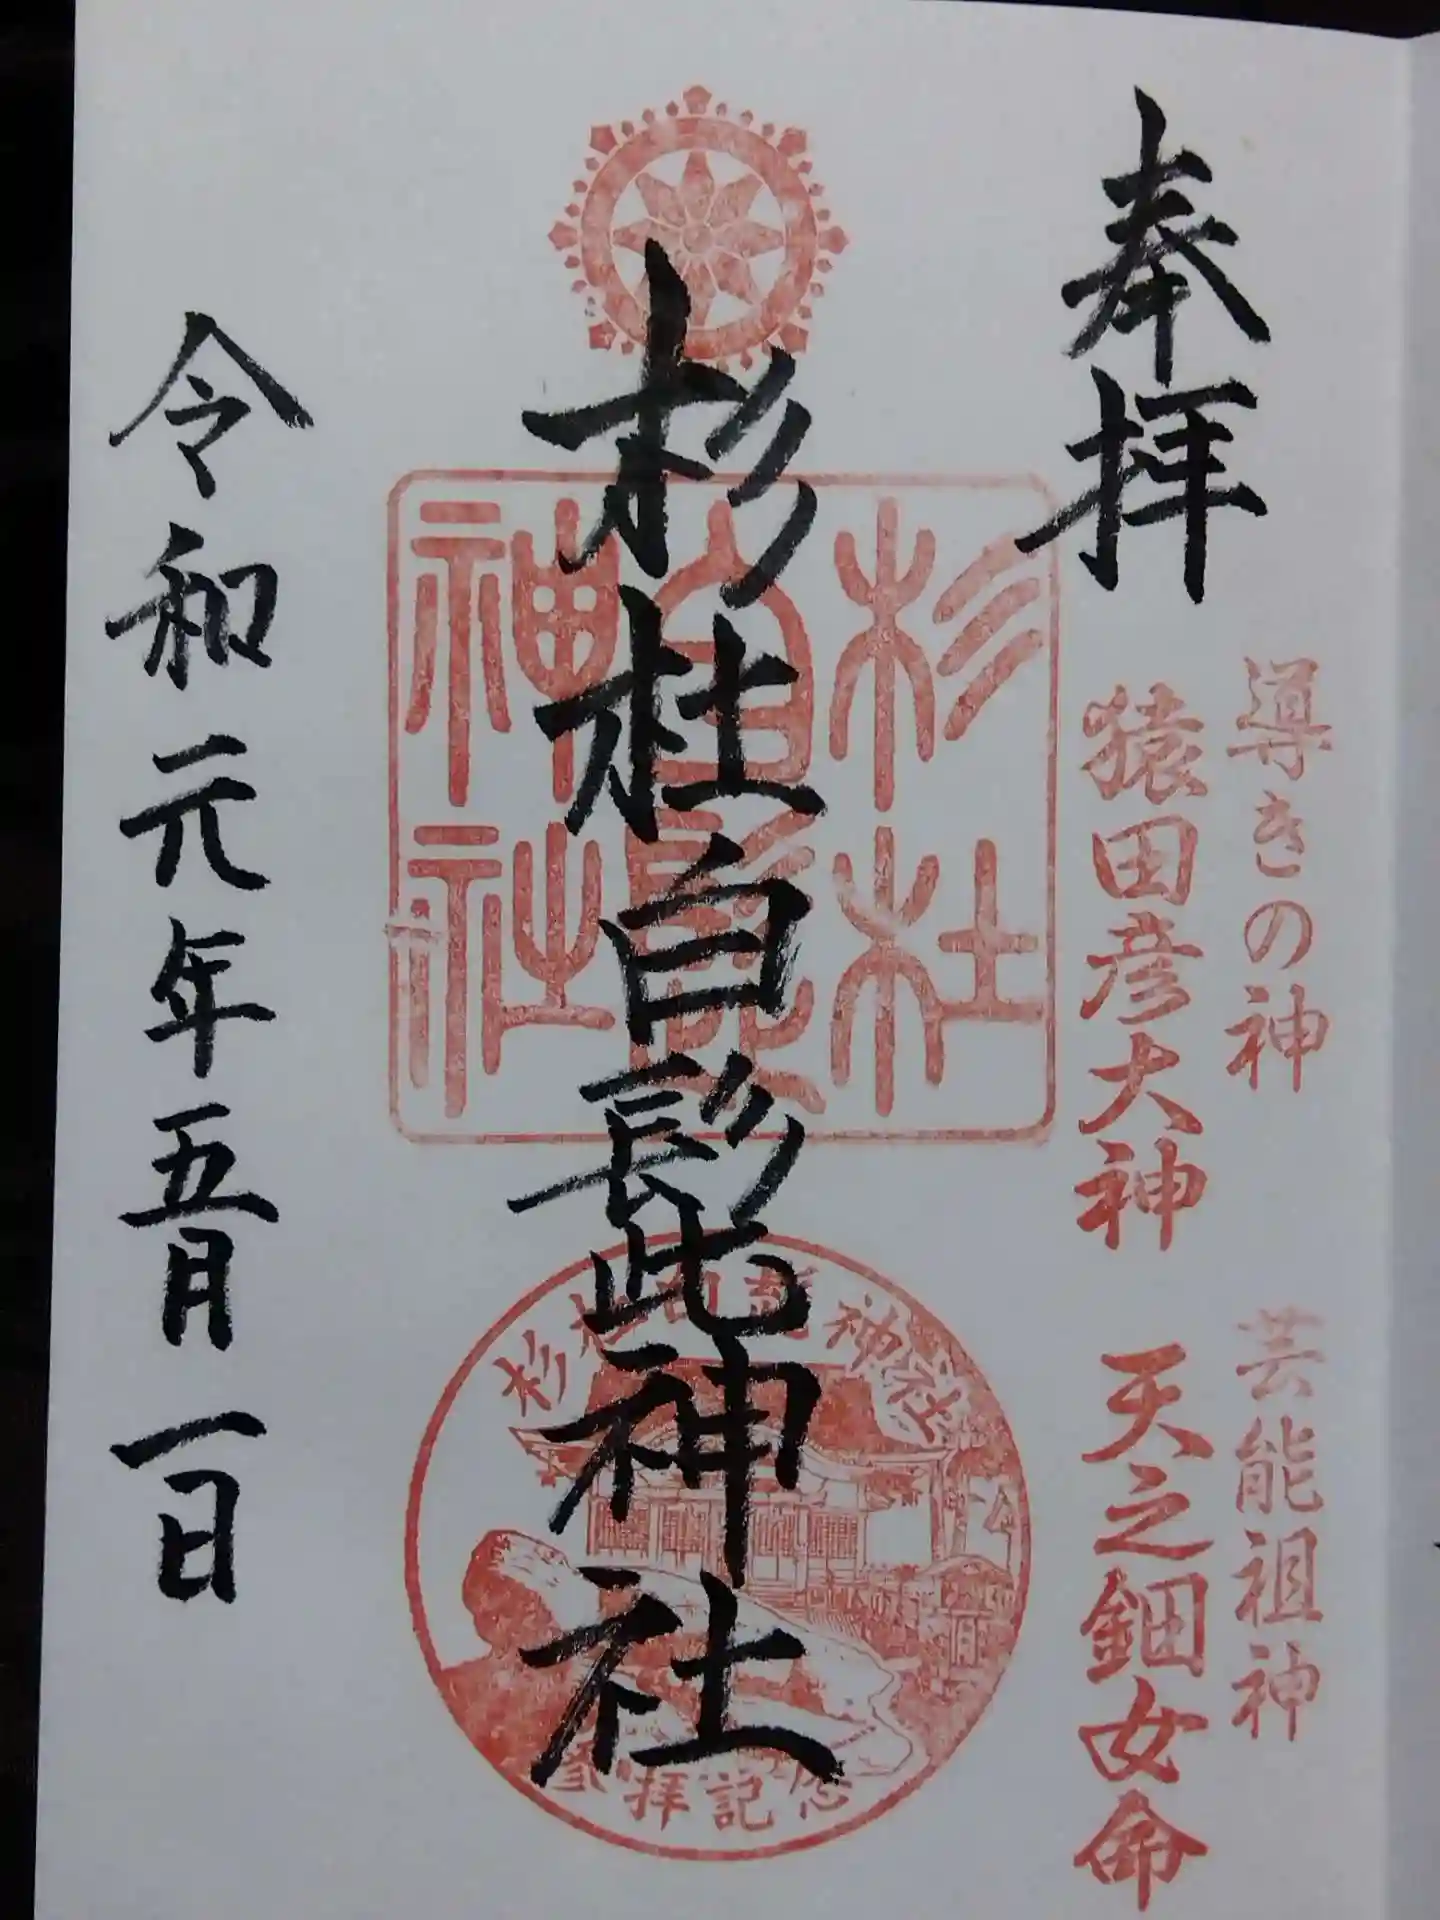 奉拝
導きの神
猿田彦大神
芸能祖神
天之鈿女命
杉杜白髭神社
杉杜
白髭
神社
杉杜白髭神社
参拝記念
令和元年五月一日